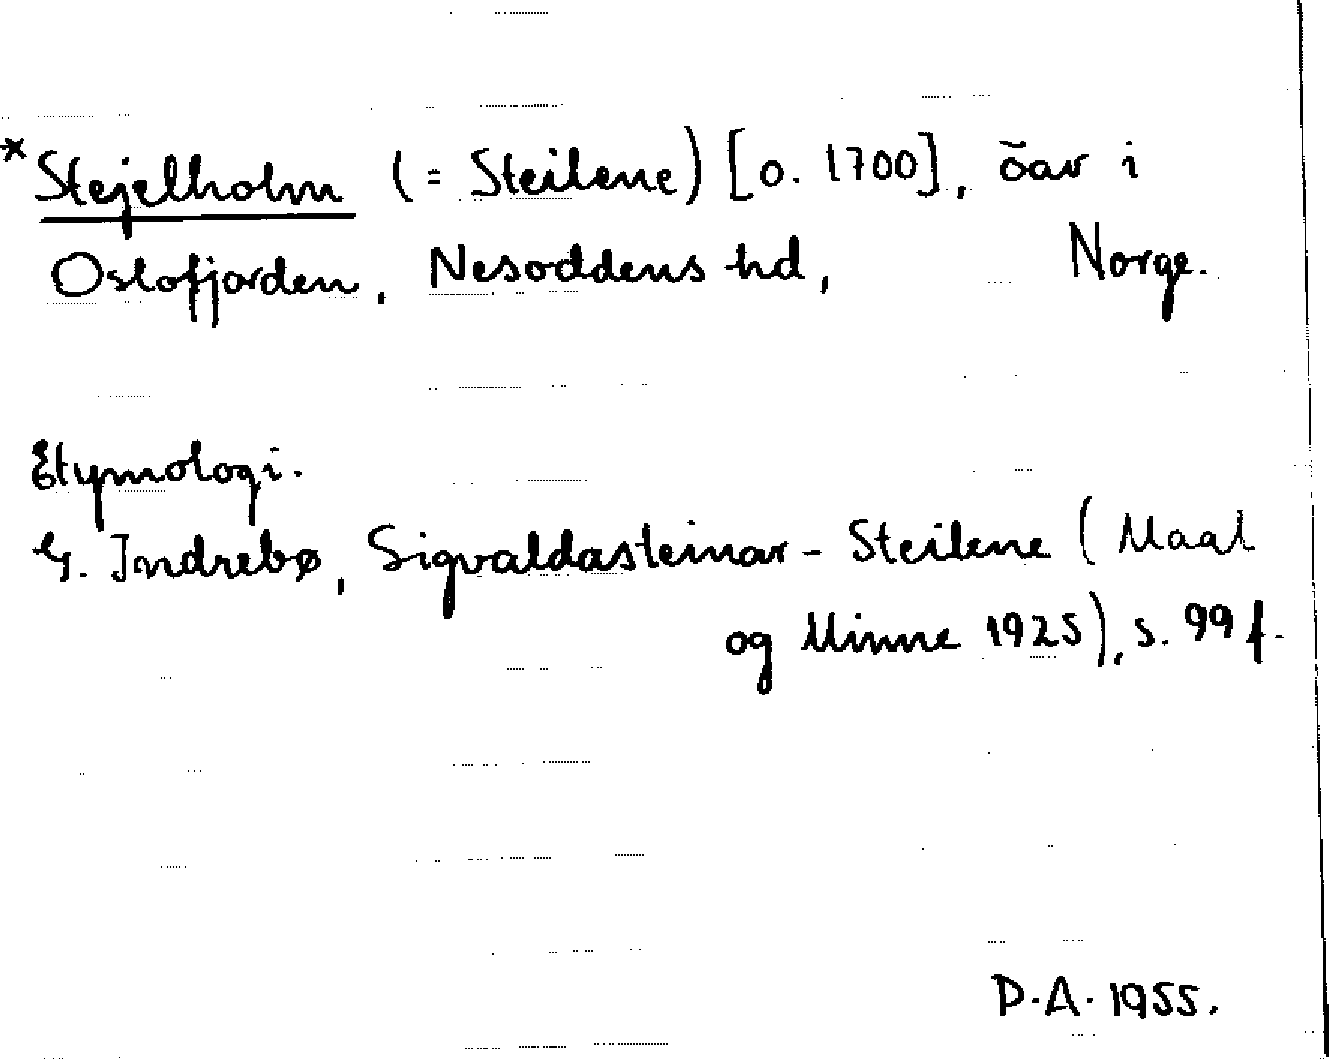 *Stejelholm (= Steilene) [o. 1700], öar i
Oslofjorden, Nesoddens hd, Norge.
Etymologi.
G. Indrebø, Sigvaldasteinar - Steilene (Maal
og Minne 1925), s. 99 f.
D.A. 1955.